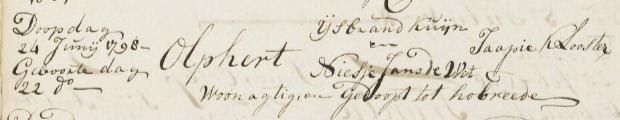 Doopdag
24 Junij 1798
Geboorte dag
22 do
Olphert
Ysbrand Kuijn
en
Niesje Jans de Wit
Jaapie Klooster
Woonagtig, en Gedoopt tot hobreede